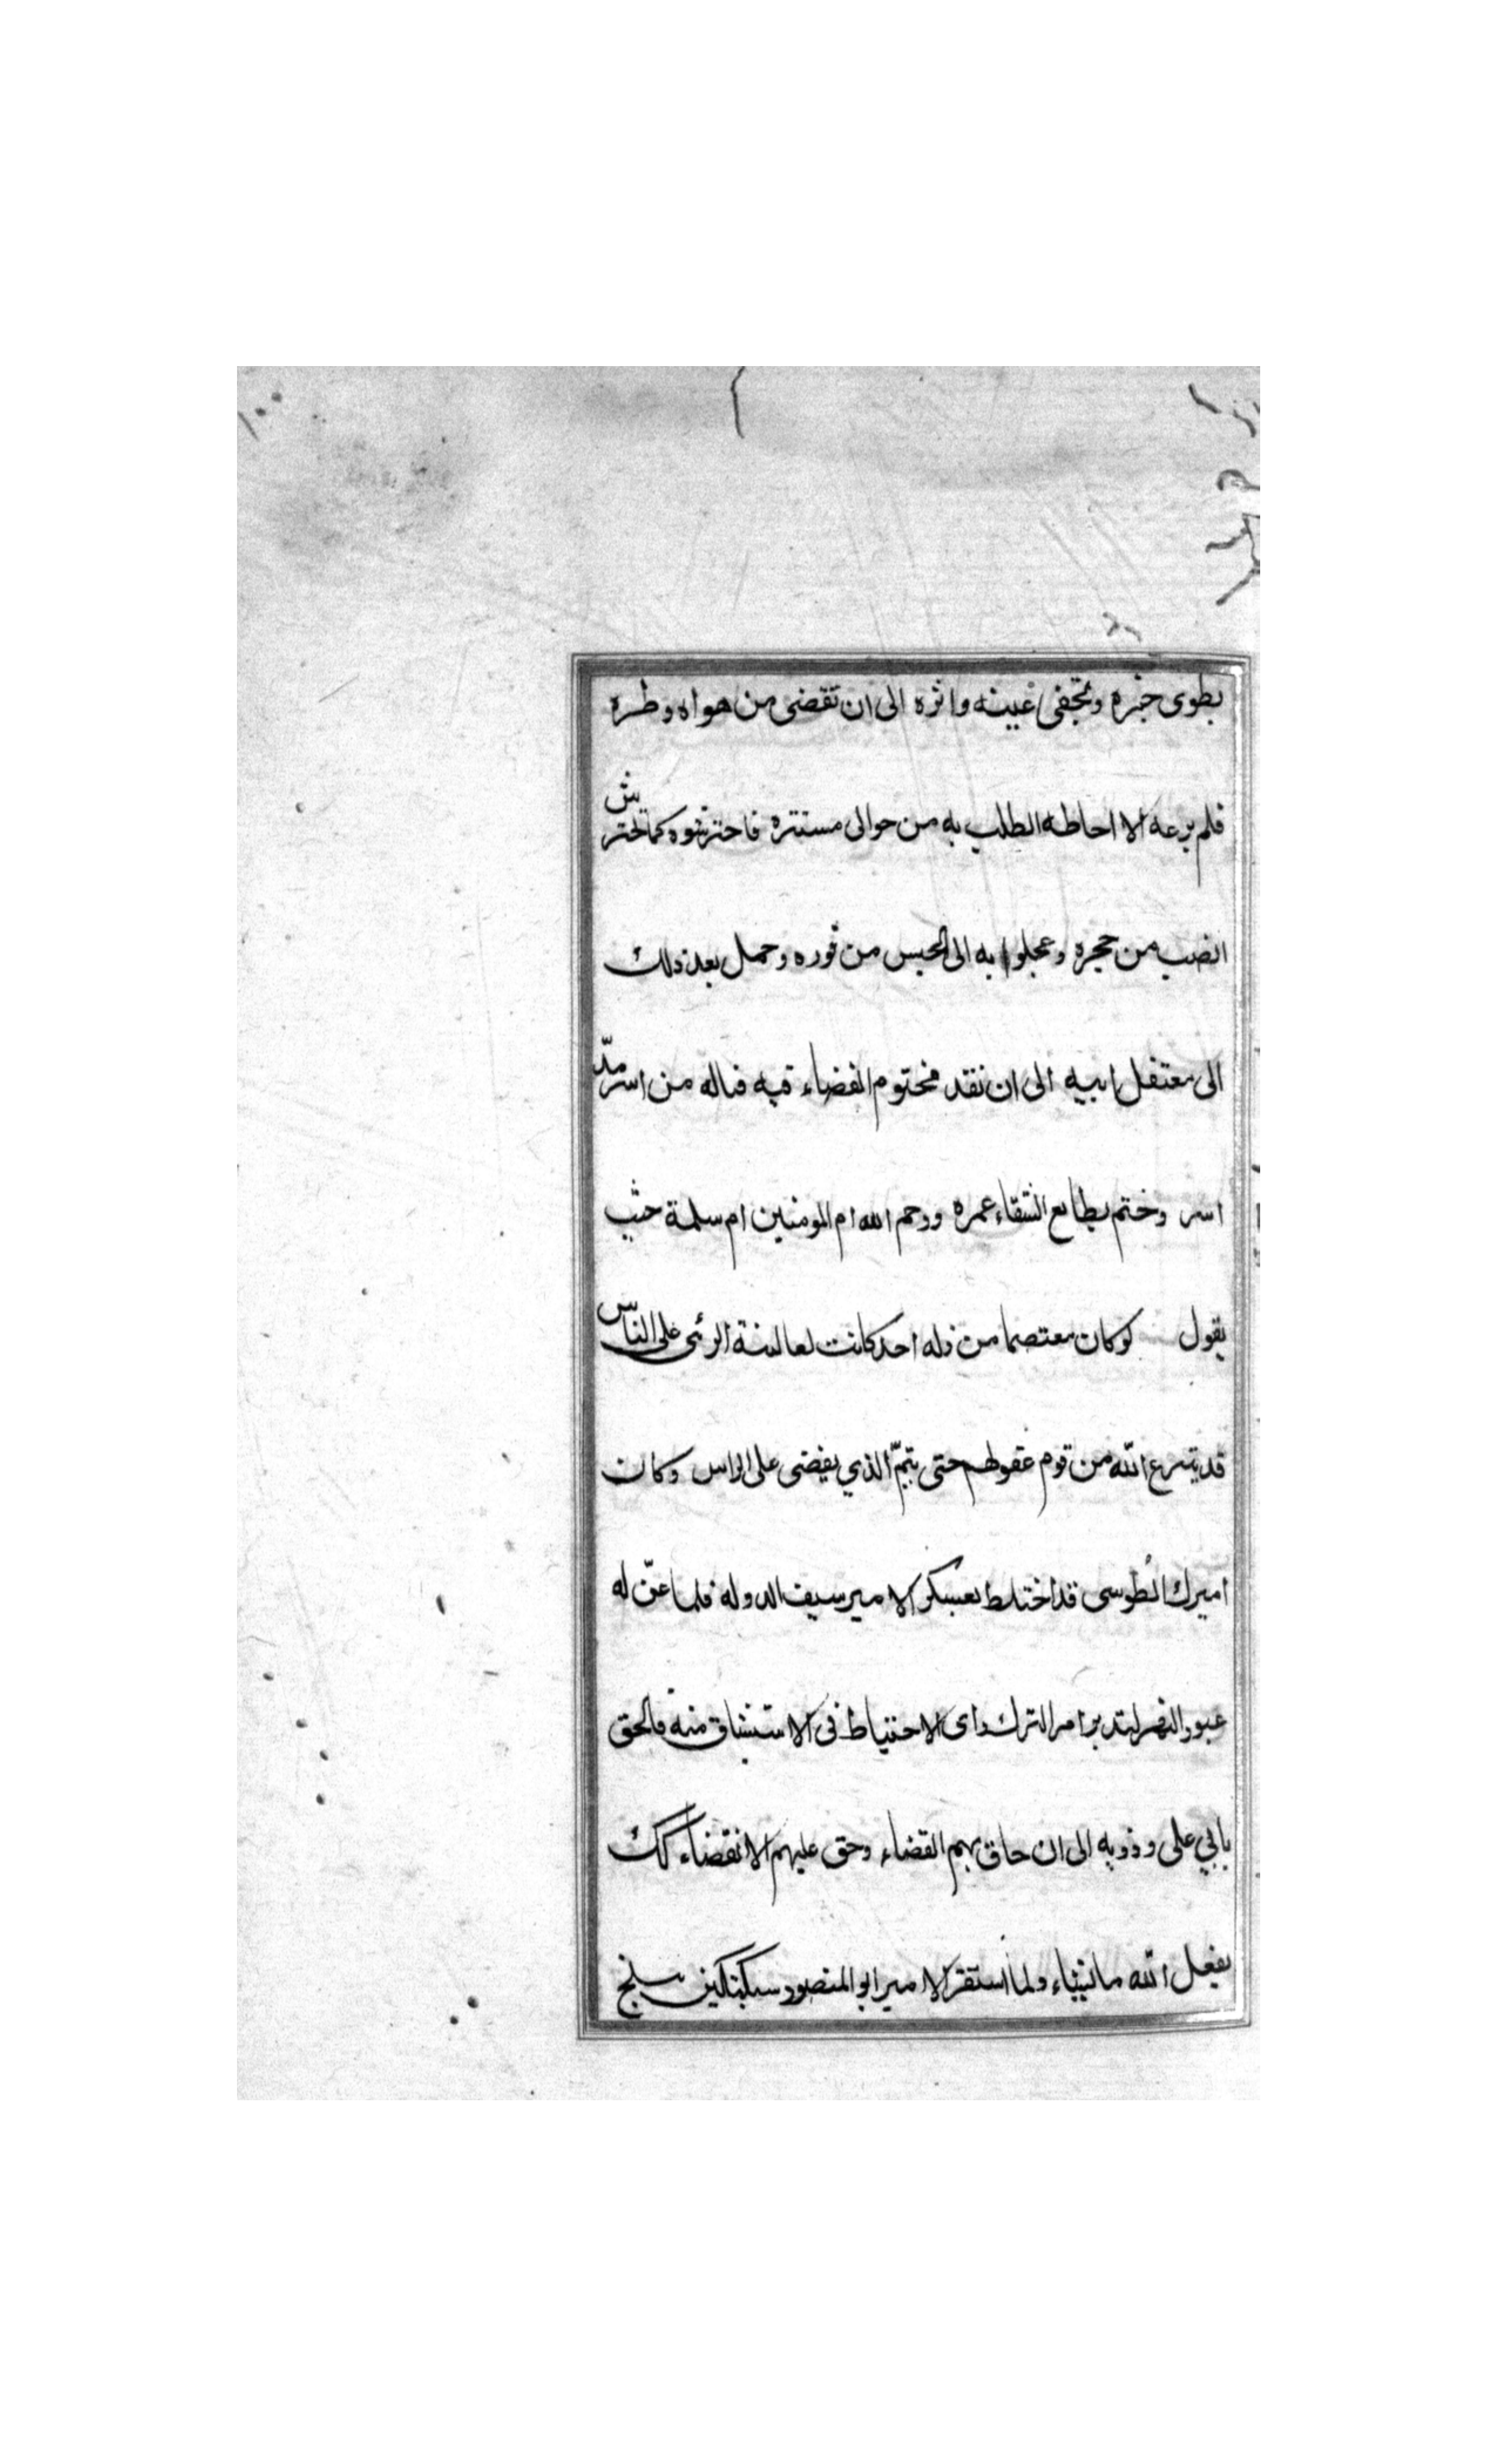 يطوى خبره وتخفى عينه واثره الى ان تقضى من هواه وطره
فلم يرعه الا احاطه الطلب به من حوالى مستتره فاحترشوه كما تحترش
الضب من حجره وعجلوا به الى الحبس من فوره وحمل بعد ذلك
الى معتقل ابيه الى ان نفد محتوم القضاء فيه فياله من اسر مدّ
اسر وختم بطابع الشقاء عمره ورحم الله ام المومنين ام سلمة حيث
يقول لو كان معتصما من زله احد كانت لعايشة الرئى على الناس
قد ينزع الله من قوم عقولهم حتى يتمّ الذي يقضى على الراس وكان
اميرك الطوسى قد اختلط بعسكر الامير سيف الدوله فلما عنّ له
عبور النهر لتدبير امر الترك راى الاحتياط فى الاستيثاق منه فالحق
بابي على وذويه الى ان حاق بهم القضاء وحق عليهم الانقضاء كك
يفعل الله ما يشاء ولما استقر الامير ابو المنصور سبكتكين ببلخ